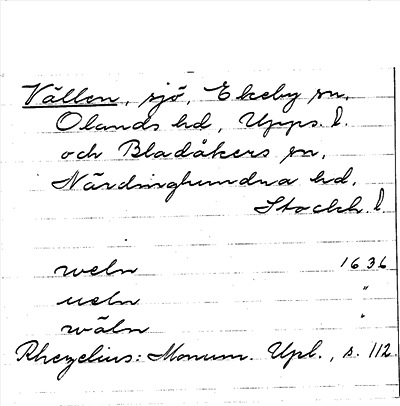 Vällen, sjö, Ekeby sn,
Olands hd, Upps. l.
och Bladåkers sn,
Närdinghundra hd,
Stockh. l.
weln 1636
ueln "
wäln "
Rhezelius: Monum. Upl., s. 112.